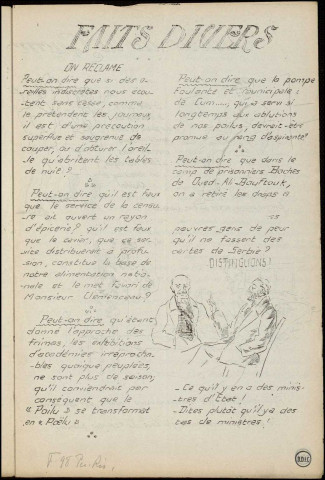 FAITS DIVERS
ON RÉCLAME
Peut-on dire que si des o-
reilles indiscrètes nous écou-
tent sans cesse, comme
le prétendent les journaux,
il est d'une précaution
superflue et saugrenue de
couper, ou d'obturer l'oreil-
le qu'abritent les tables
de nuit ?
Peut-on dire qu'il est faux
que le service de la censu-
re ait ouvert un rayon
d'épicerie ? qu'il est faux
que le caviar, que ce ser-
vice distribuerait à profu-
sion, constitue la base de
notre alimentation natio-
nale et le mets favori de
Monsieur Clemenceau ?
Peut-on dire, qu'étant
donné l'approche des
frimas, les exhibitions
d'académies irréprocha-
bles quoique peuplées,
ne sont plus de saison;
qu'il conviendrait par
conséquent que le
"Poilu" se transformât
en "Poêlu"
Peut-on dire que la pompe
Foulante et municipale
de Cuns..., qui a servi si
longtemps aux ablutions
de nos poilus, devrait être
promue au rang d'aspirante?
Peut-on dire que dans le
camp de prisonniers Boches
de Oued-Ali-Bouftouk,
on a retiré les draps à
ces
pauvres gens de peur
qu'il ne fassent des
cartes de Serbie ?
DISTINGUONS!
- Ce qu'il y en a des minis-
tres d'Etat !
- Dites plutôt qu'il y a des
tas de ministres !
BDIC